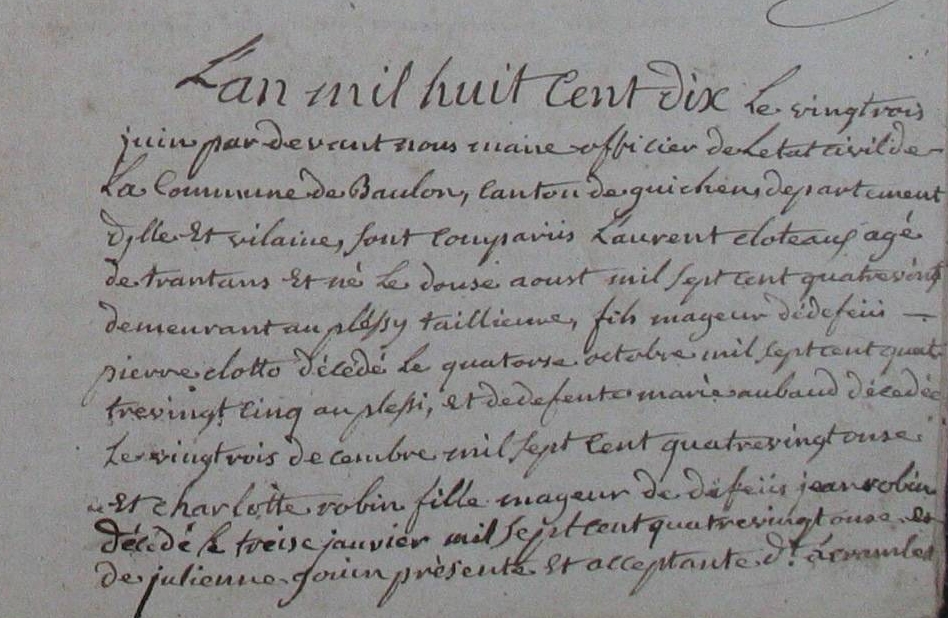 L'an mil huit Cent dix Le vingtrois
juin par devant nous maire officier de Letat civil de
La Commune de Baulon, Canton de guichen, departement
dylle Et vilaine, sont Comparüs Laurent cloteaux agé
de trantans Et né Le douse aoust mil sept cent quatrevingt
demeurant au plessy taillieure, fils mageur dedefeüs
pierre clotto décédé Le quatorse octobre mil sept cent quat
trevingt Cinq au plessi, et dedefente marie aubaud décedée
Le vingtrois decembre mil sept Cent quatrevingt onse
Et charlotte robin fille mageur de défeüs jean robin
décédé le treise janvier mil sept cent quatrevingt onse et
de julienne Gouin présente Et acceptante dt.